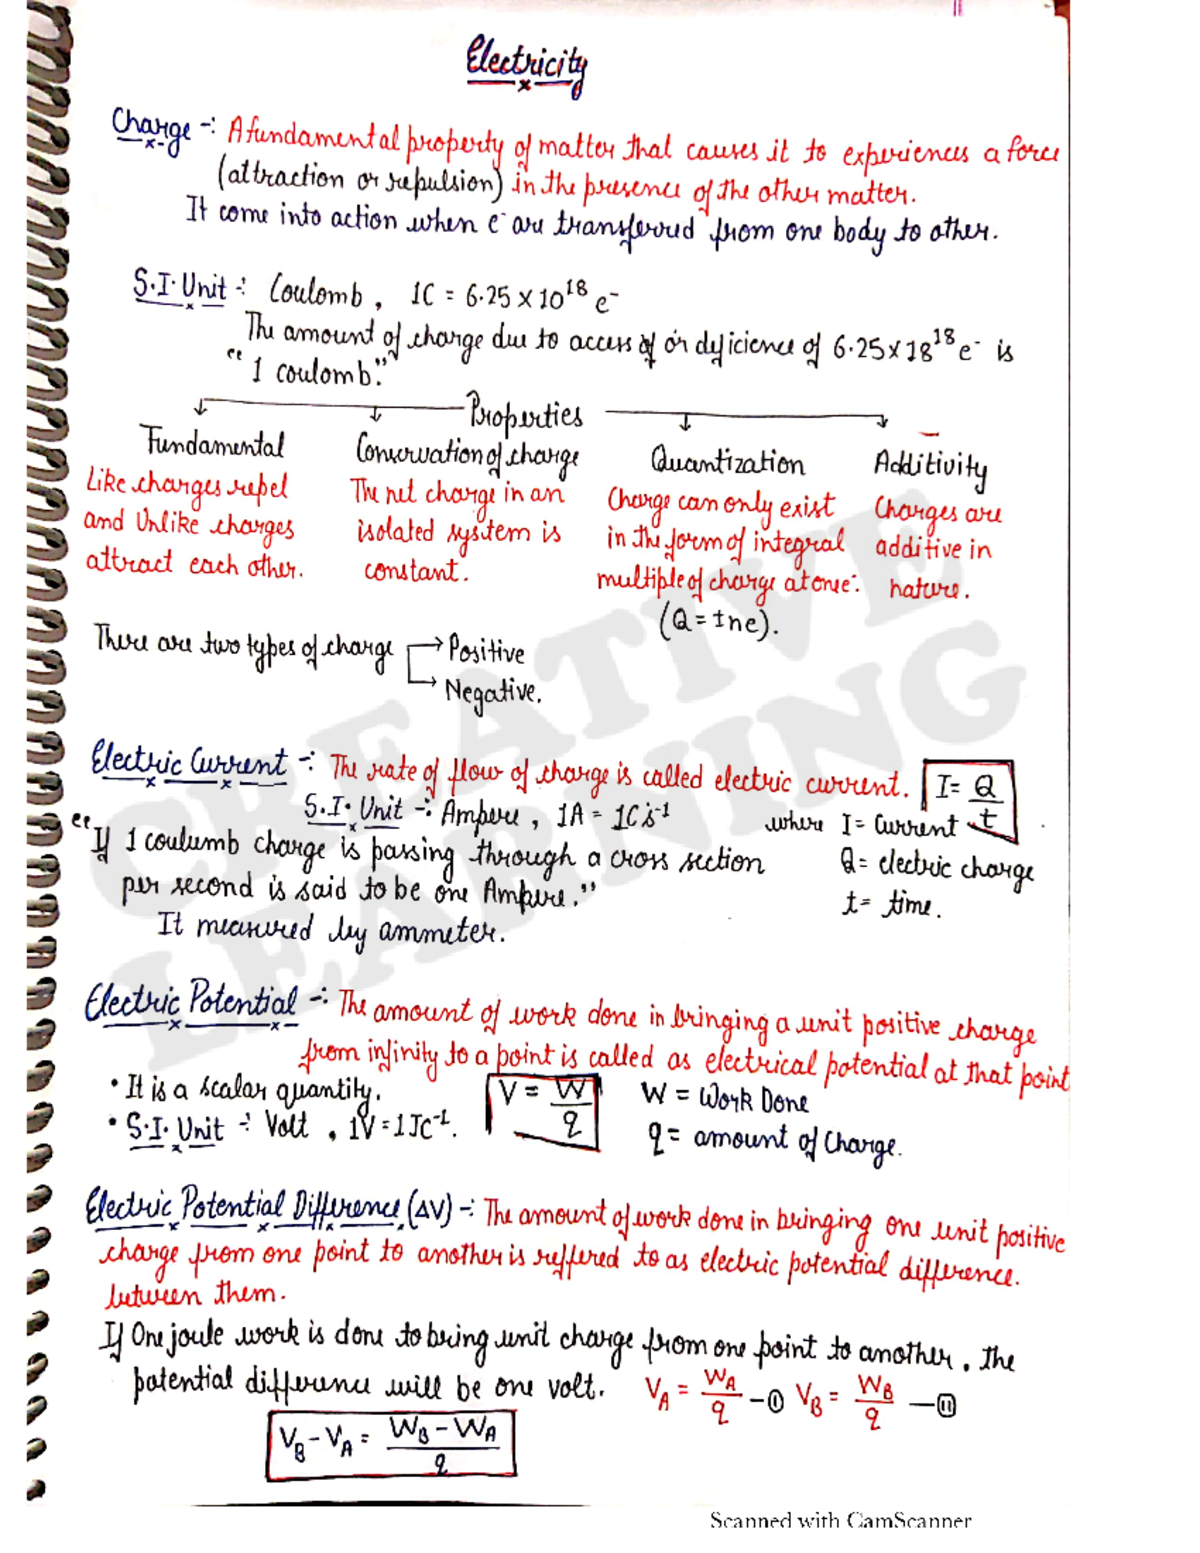 Electricity
Charge -: A fundamental property of matter that causes it to experiences a force
(attraction or repulsion) in the presence of the other matter.
It come into action when e⁻ are transferred from one body to other.
S.I. Unit -: Coulomb, 1C = 6.25 x 10¹⁸ e⁻
The amount of charge due to access of or dificience of 6.25x18¹⁸ e⁻ is
"1 coulomb."
Properties
Fundamental
Like charges repel
and Unlike charges
attract each other.
Conservation of charge
The net charge in an
isolated system is
constant.
Quantization
Charge can only exist
in the form of integral
multiple of charge atone:
(Q = ±ne).
Additivity
Charges are
additive in
nature.
There are two types of charge → Positive
→ Negative.
Electric Current -: The rate of flow of charge is called electric current. I = Q/t
S.I. Unit -: Ampere, 1A = 1Cs⁻¹
where I = Current
Q = electric charge
t = time.
"If 1 coulumb charge is passing through a cross section
per second is said to be one Ampere."
It measured by ammeter.
Electric Potential -: The amount of work done in bringing a unit positive charge
from infinity to a point is called as electrical potential at that point
• It is a scalar quantity.
• S.I. Unit -: Volt, 1V = 1JC⁻¹.
V = W/q
W = Work Done
q = amount of Charge.
Electric Potential Difference (ΔV) -: The amount of work done in bringing one unit positive
charge from one point to another is reffered to as electric potential difference.
between them.
If One joule work is done to bring unit charge from one point to another, the
potential difference will be one volt. V_A = W_A/q -(I) V_B = W_B/q -(II)
V_B - V_A = (W_B - W_A)/q
CREATIVE
LEARNING
Scanned with CamScanner